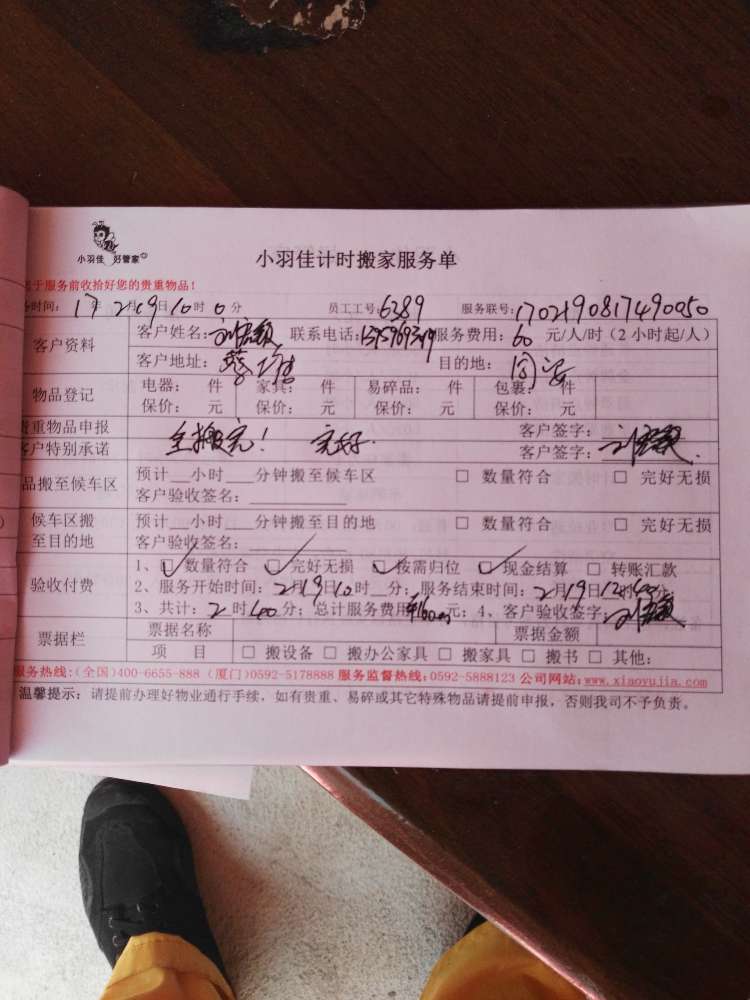 小羽佳 好管家
小羽佳计时搬家服务单
于服务前收拾好您的贵重物品!
时间: 17年 2月19日10时 0分 员工工号:6289 服务联号:1702190817490050
客户资料
客户姓名: 联系电话: 服务费用: 60 元/人/时 (2小时起/人)
客户地址: 目的地: 同安
物品登记
电器: 件 家具: 件 易碎品: 件 包裹: 件
保价: 元 保价: 元 保价: 元 保价: 元
贵重物品申报 客户签字:
客户特别承诺 全搬完! 完好. 客户签字:
品搬至候车区
预计__小时___分钟搬至候车区 □ 数量符合 □ 完好无损
客户验收签名:
候车区搬至目的地
预计__小时___分钟搬至目的地 □ 数量符合 □ 完好无损
客户验收签名:
验收付费
1、☑数量符合 ☑完好无损 ☑按需归位 ☑现金结算 □ 转账汇款
2、服务开始时间: 2月19日10时__分; 服务结束时间: 2月19日12时40
3、共计: 2 时40分; 总计服务费用 元; 4、客户验收签字:
票据栏
票据名称 票据金额
项 目 □ 搬设备 □ 搬办公家具 □ 搬家具 □ 搬书 □ 其他:
服务热线:(全国)400-6655-888 (厦门)0592-5178888 服务监督热线:0592-5888123 公司网站:www.xiaoyujia.com
温馨提示: 请提前办理好物业通行手续, 如有贵重、易碎或其它特殊物品请提前申报, 否则我司不予负责。